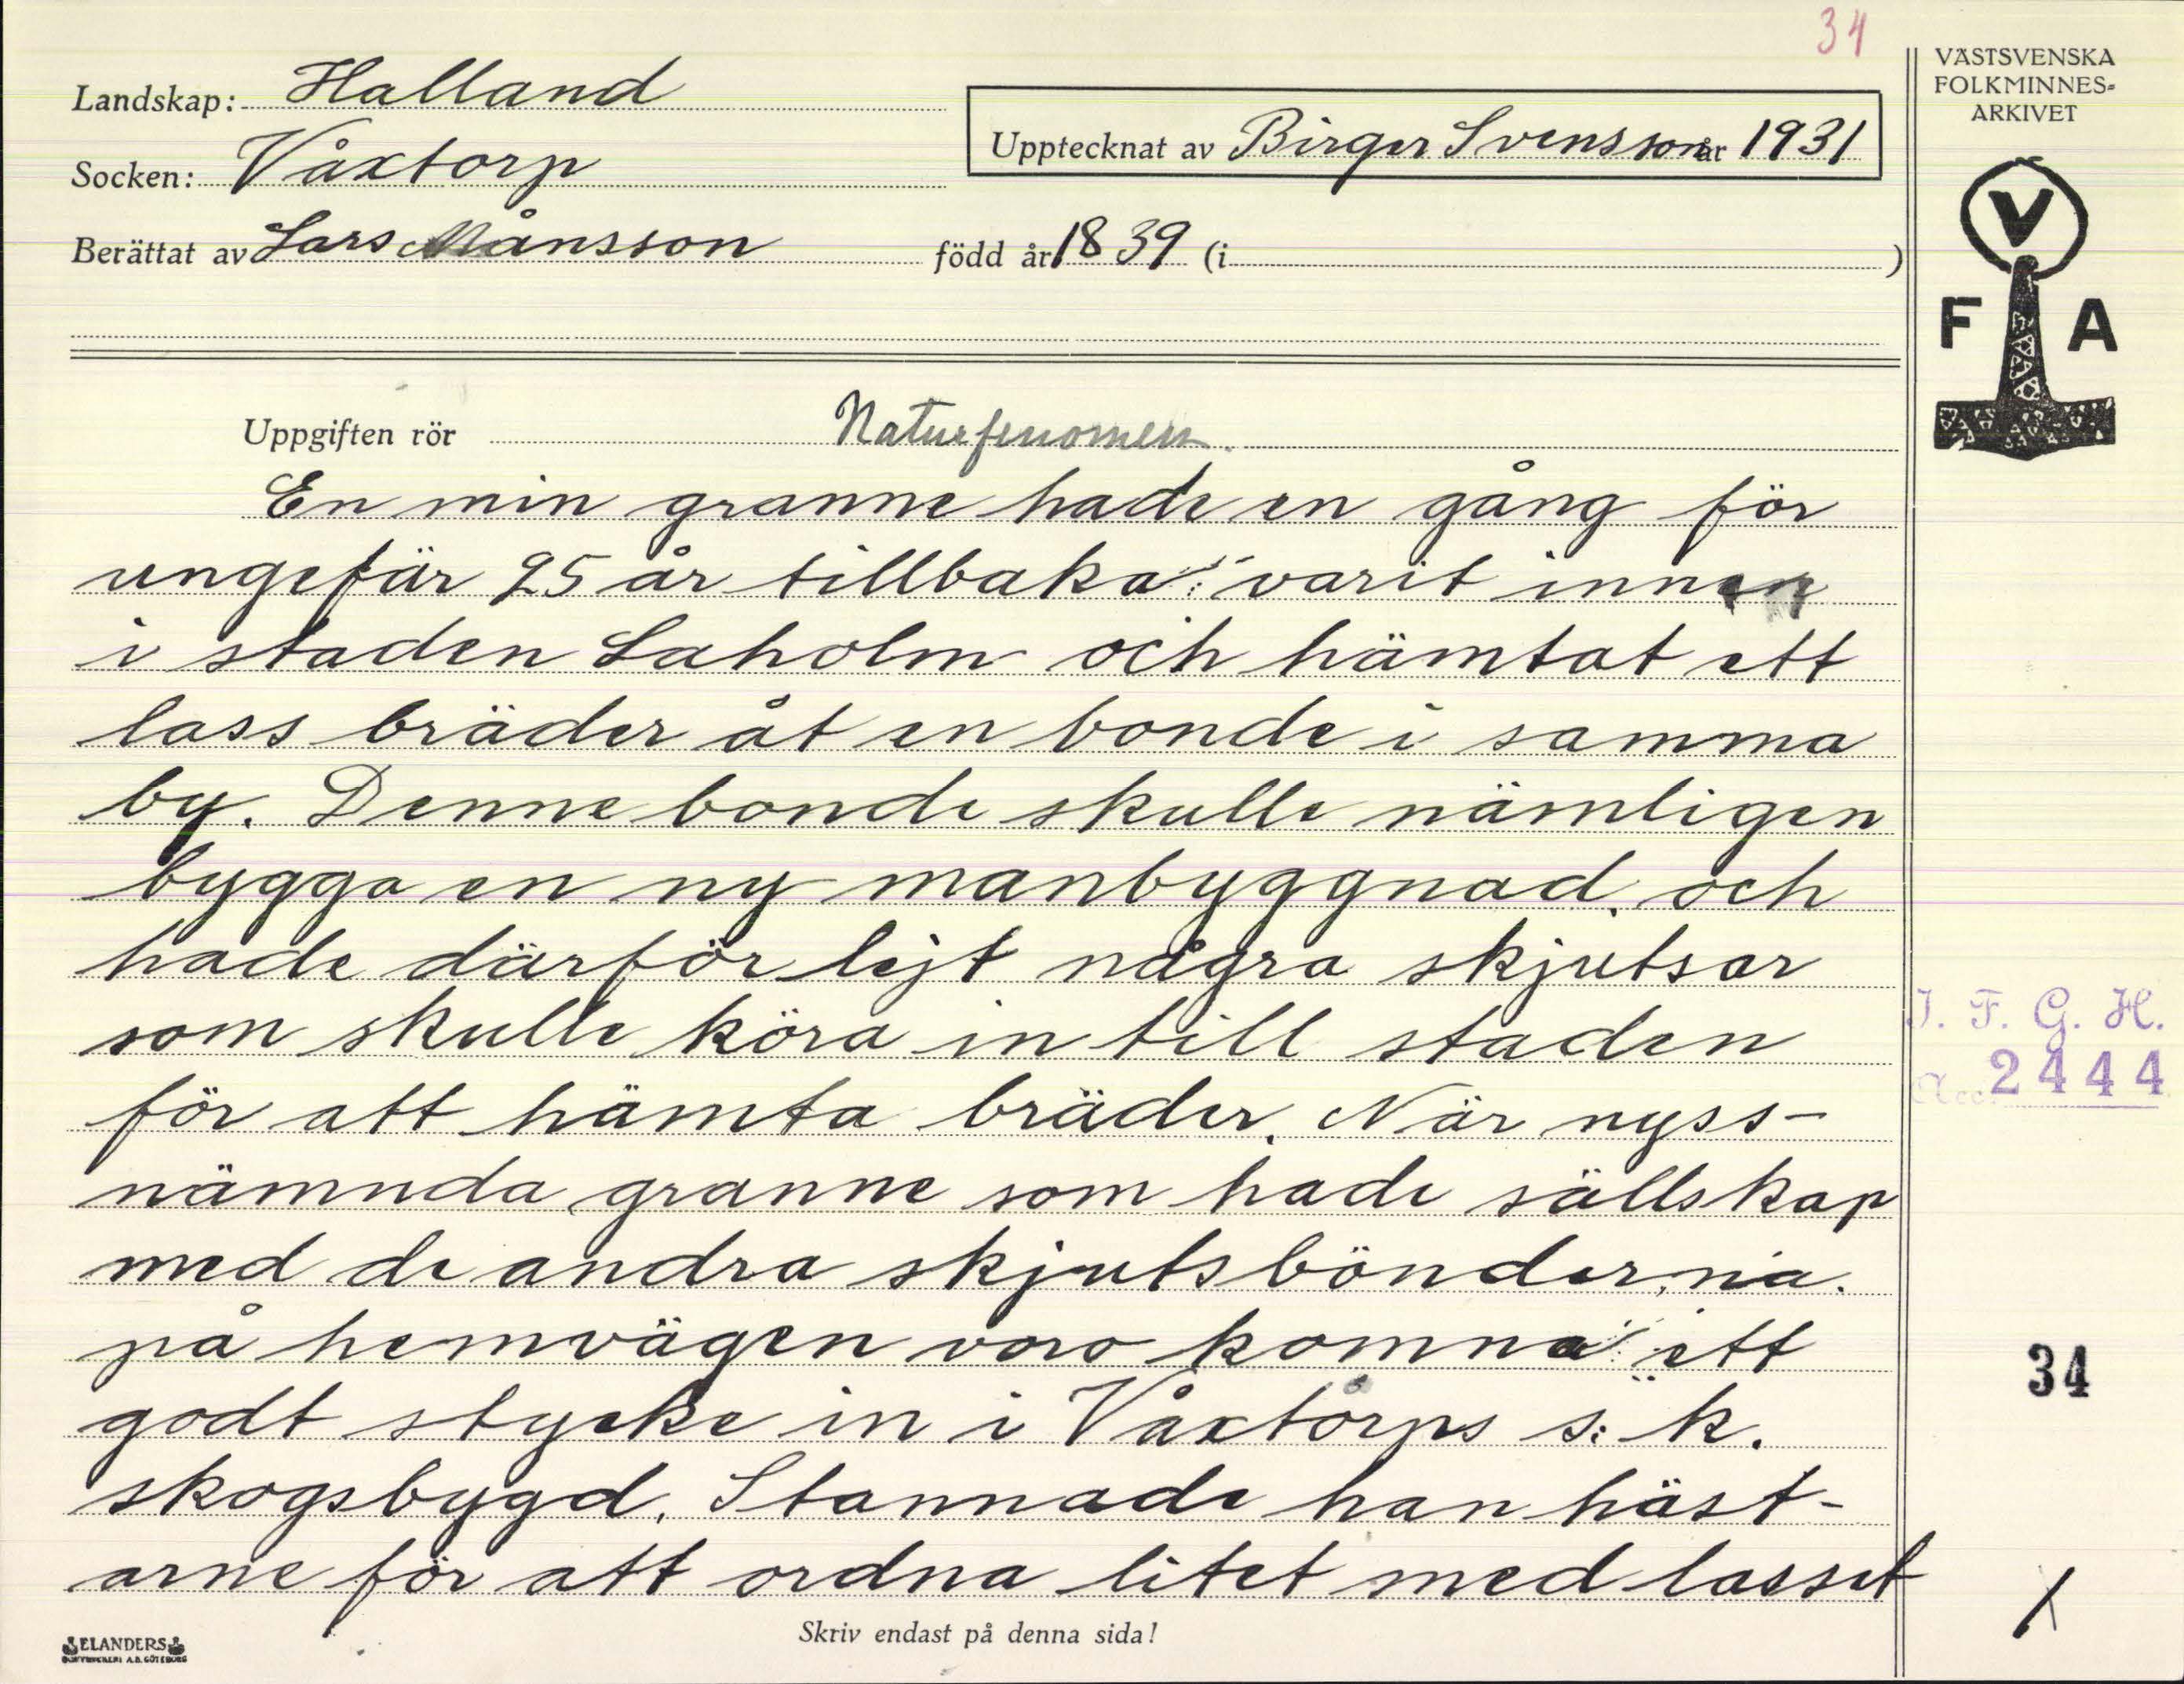 34
VÄSTSVENSKA
FOLKMINNES-
ARKIVET
Landskap: Halland
Upptecknat av Birger Svensson år 1931
Socken: Våxtorp
Berättat av Lars Månsson född år 1839 (i )
V
F A
Uppgiften rör Naturfenomen.
En min granne hade en gång för
ungefär 25 år tillbaka varit innen
i staden Laholm och hämtat ett
lass bräder åt en bonde i samma
by. Denne bonde skulle nämligen
bygga en ny manbyggnad, och
hade därför lejt några skjutsar
som skulle köra in till staden
för att hämta bräder. När nyss-
nämnda granne som hade sällskap
med de andra skjutsbönderna.
på hemvägen voro komna ett
godt stycke in i Våxtorps s: k.
skogsbygd. Stannade han häst-
arne för att ordna litet med lasset
I. F. G. H.
Acc. 2444
34
1
Skriv endast på denna sida!
ELANDERS
BOKTRYCKERI A.B. GÖTEBORG